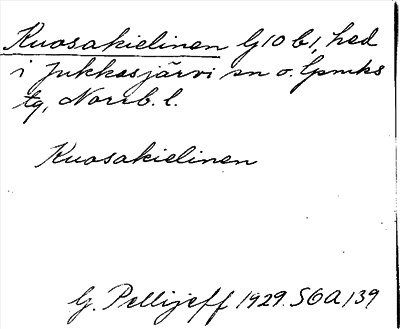 Kuosakielinen G10 b1, hed
i Jukkasjärvi sn o. lpmks
tg, Norrb. l.
Kuosakielinen
G. Pellijeff 1929. SOA 139